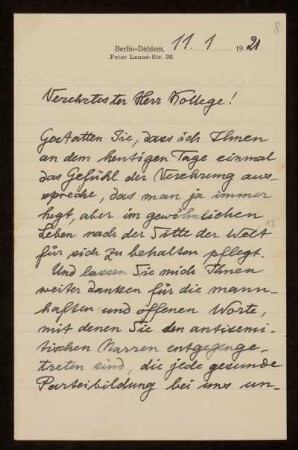 8
Berlin-Dahlem, 11.1 1921
Peter Lenné-Str. 36
Verehrtester Herr Kollege!
Gestatten Sie, dass ich Ihnen
an dem heutigen Tage einmal
das Gefühl der Verehrung aus-
spreche, das man ja immer
hegt, aber im gewöhnlichen
Leben nach der Sitte der Welt
für sich zu behalten pflegt.
Und lassen Sie mich Ihnen
weiter danken für die mann-
haften und offenen Worte,
mit denen Sie den antisemi-
tischen Narren entgegenge-
treten sind, die jede gesunde
Parteibildung bei uns un-